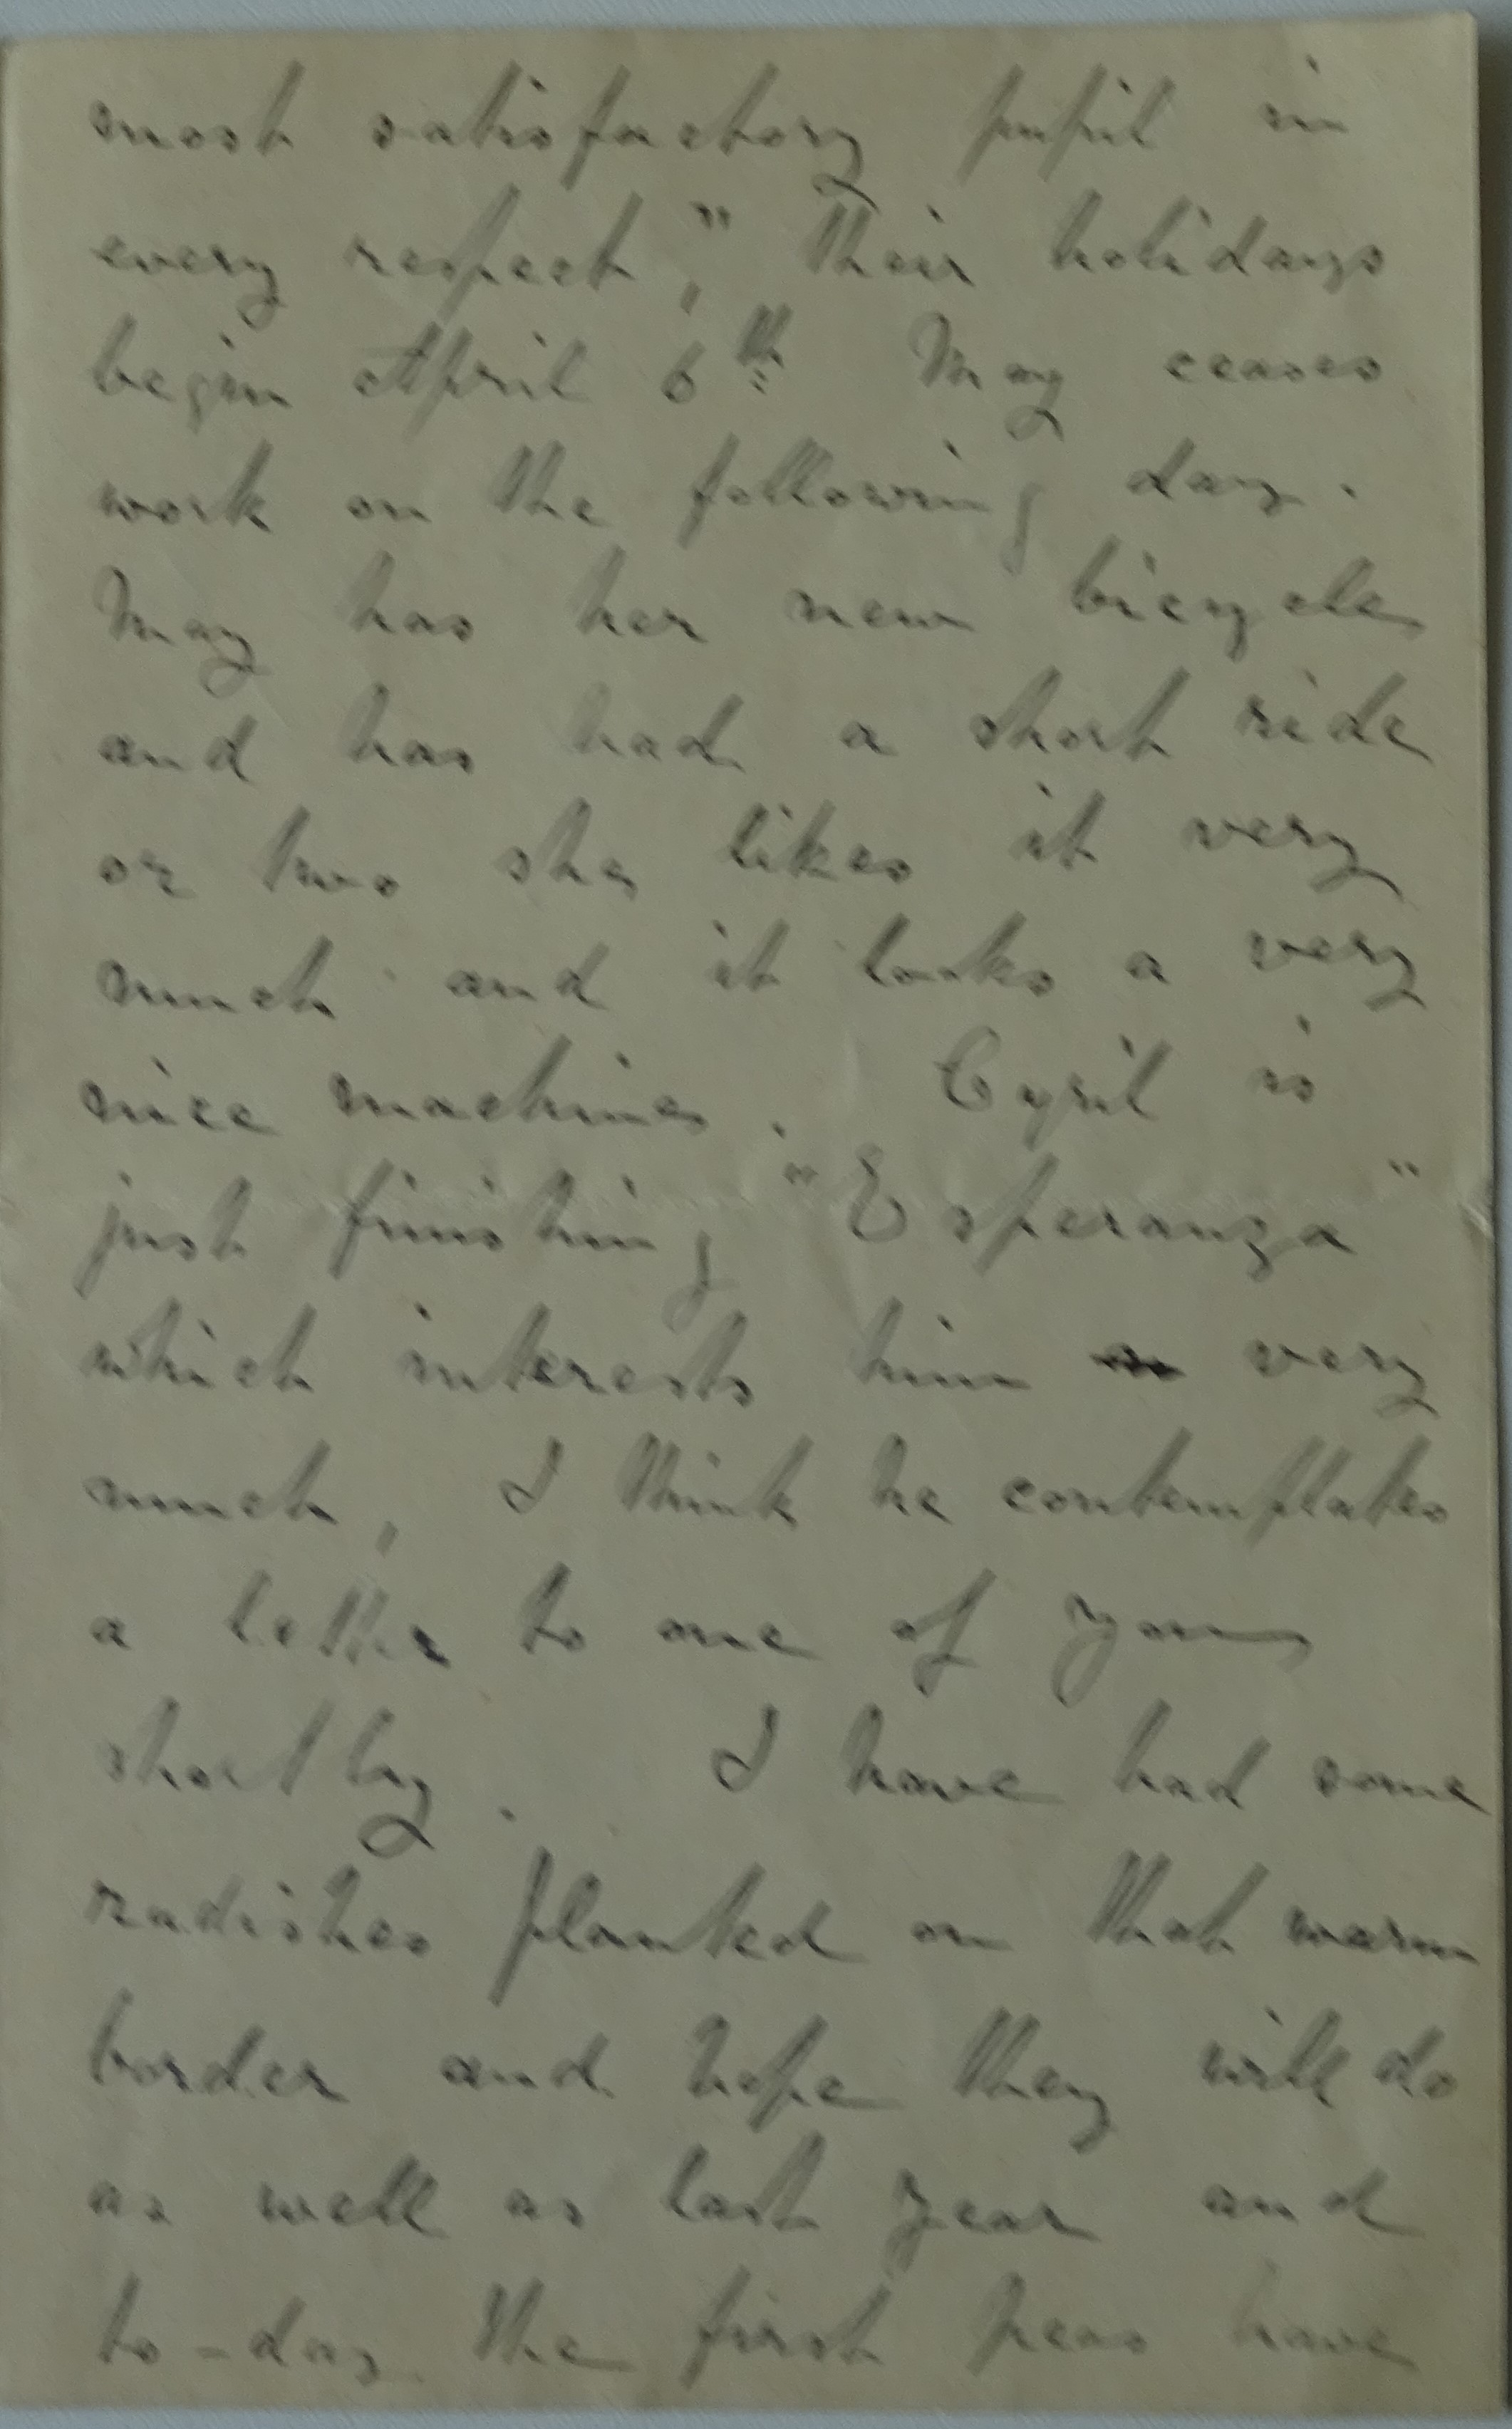 most satisfactory pupil in
every respect," their holidays
begin April 6th May ceases
work on the following day.
May has her new bicycle
and has had a short ride
or two she likes it very
much and it looks a very
nice machine. Cyril is
just finishing "Esperanza"
which interests him very
much, I think he contemplates
a letter to one of you
shortly. I have had some
radishes planted on that warm
border and hope they will do
as well as last year and
to-day the first peas have